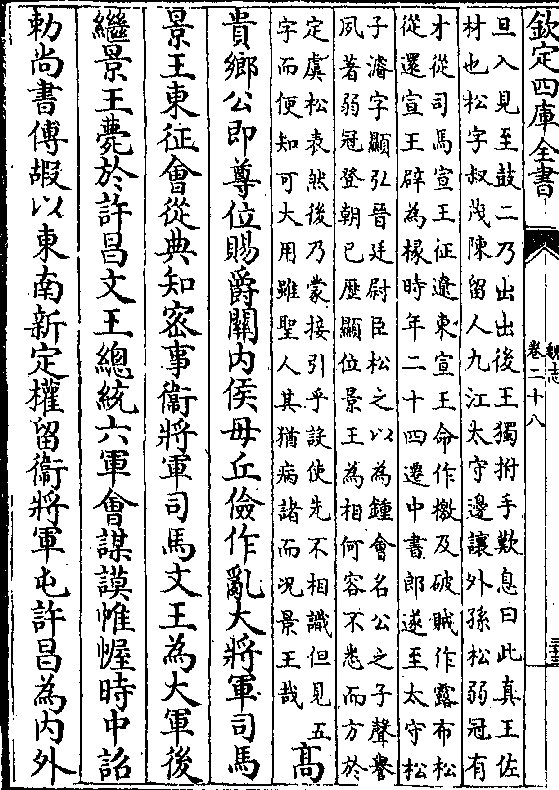 欽定四庫全書
魏志
卷二十八
旦入見至鼓二乃出出後王獨拊手歎息曰此真王佐
材也松字叔茂陳留人九江太守邊讓外孫松弱冠有
才從司馬宣王征遼東宣王命作檄及破賊作露布松
從還宣王辟為掾時年二十四遷中書郎遂至太守松
子濬字顯弘晉廷尉臣松之以為鍾會名公之子聲譽
夙著弱冠登朝已歷顯位景王為相何容不悉而方於
定虞松表然後乃蒙接引乎設使先不相識但見五
字而便知可大用雖聖人其猶病諸而况景王哉
高
貴鄉公即尊位賜爵關内侯毋丘儉作亂大將軍司馬
景王東征會從典知宻事衞將軍司馬文王為大軍後
繼景王薨於許昌文王總統六軍會謀謨帷幄時中詔
勅尚書傅嘏以東南新定權留衞將軍屯許昌為内外